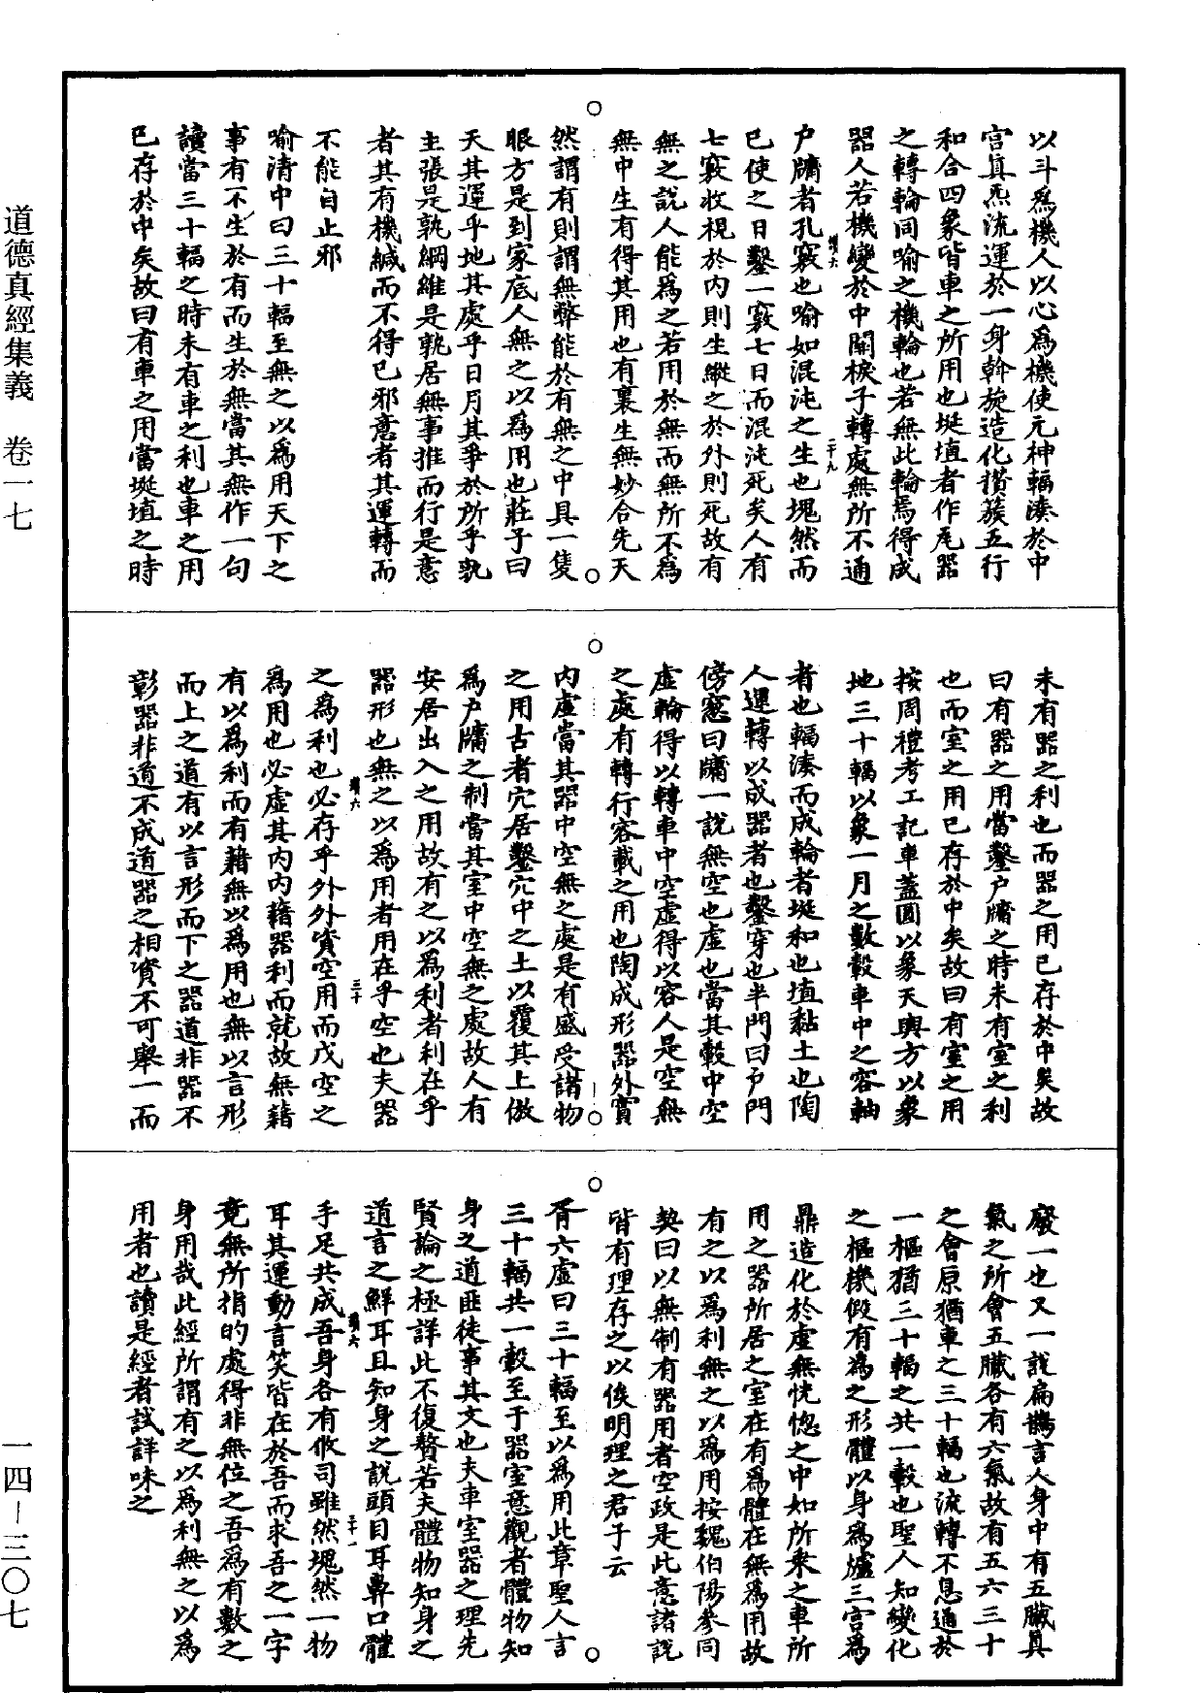 以斗爲機人以心爲機使元神輻湊於中
宮眞炁流運於一身斡旋造化攅簇五行
和合四象皆車之所用也埏埴者作瓦器
之轉輪同喻之機輪也若無此輪焉得成
器人若機變於中關棙子轉處無所不通
戶牖者孔竅也喻如混沌之生也塊然而
已使之日鑿一竅七日而混沌死矣人有
七竅收視於內則生縱之於外則死故有
無之說人能爲之若用於無而無所不爲
無中生有得其用也有裏生無妙合先天
然謂有則謂無弊能於有無之中具一隻
眼方是到家底人無之以爲用也莊子曰
天其運乎地其處乎日月其爭於所乎孰
主張是孰綱維是孰居無事推而行是意
者其有機緘而不得已邪意者其運轉而
不能自止邪
喻清中曰三十輻至無之以爲用天下之
事有不生於有而生於無當其無作一句
讀當三十輻之時未有車之利也車之用
已存於中矣故曰有車之用當埏埴之時
未有器之利也而器之用已存於中矣故
曰有器之用當鑿戶牖之時未有室之利
也而室之用已存於中矣故曰有室之用
按周禮考工記車蓋圓以象天輿方以象
地三十輻以象一月之數轂車中之容軸
者也輻湊而成輪者埏和也埴黏土也陶
人運轉以成器者也鑿穿也半門曰戶門
傍窓曰牖一說無空也虛也當其轂中空
虛輪得以轉車中空虛得以容人是空無
之處有轉行容載之用也陶成形器外實
內虛當其器中空無之處是有盛受諸物
之用古者穴居鑿穴中之土以覆其上倣
爲戶牖之制當其室中空無之處故人有
安居出入之用故有之以爲利者利在乎
器形也無之以爲用者用在乎空也夫器
之爲利也必存乎外外資空用而戊空之
爲用也必虛其內內藉器利而就故無藉
有以爲利而有藉無以爲用也無以言形
而上之道有以言形而下之器道非器不
彰器非道不成道器之相資不可舉一而
廢一也又一說扁鵲言人身中有五臟眞
氣之所會五臟各有六氣故有五六三十
之會原猶車之三十輻也流轉不息適於
一樞猶三十輻之共一轂也聖人知變化
之樞機假有為之形體以身爲爐三宮爲
鼎造化於虛無恍惚之中如所乘之車所
用之器所居之室在有爲體在無爲用故
有之以爲利無之以爲用按魏伯陽參同
契曰以無制有器用者空政是此意諸說
皆有理存之以俟明理之君子云
胥六虛曰三十輻至以爲用此章聖人言
三十輻共一轂至于器室意觀者體物知
身之道匪徒事其文也夫車室器之理先
賢論之極詳此不復贅若夫體物知身之
道言之鮮耳且知身之說頭目耳鼻口體
手足共成吾身各有攸司雖然塊然一物
耳其運動言笑皆在於吾而求吾之一字
竟無所指的處得非無位之吾爲有數之
身用哉此經所謂有之以爲利無之以爲
用者也讀是經者試詳味之
道德真經集義　卷一七
一四—三〇七